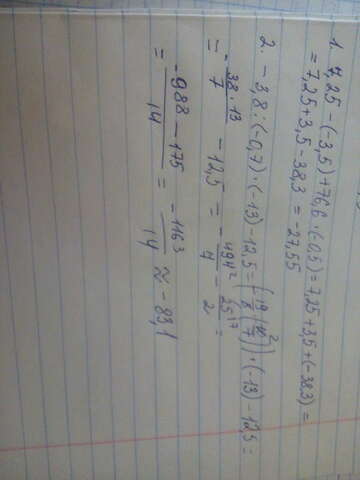 1. 7,25 - (-3,5) + 76,6 · (-0,5) = 7,25 + 3,5 + (-38,3) =
= 7,25 + 3,5 - 38,3 = -27,55
2. - 3,8 : (-0,7) · (-13) - 12,5 = (19/5 (10²/7)) · (-13) - 12,5 =
= - 38·13/7 - 12,5 = - 494²/7 - 25¹⁷/2 =
= -988 - 175/14 = -1163/14 ≈ -83,1